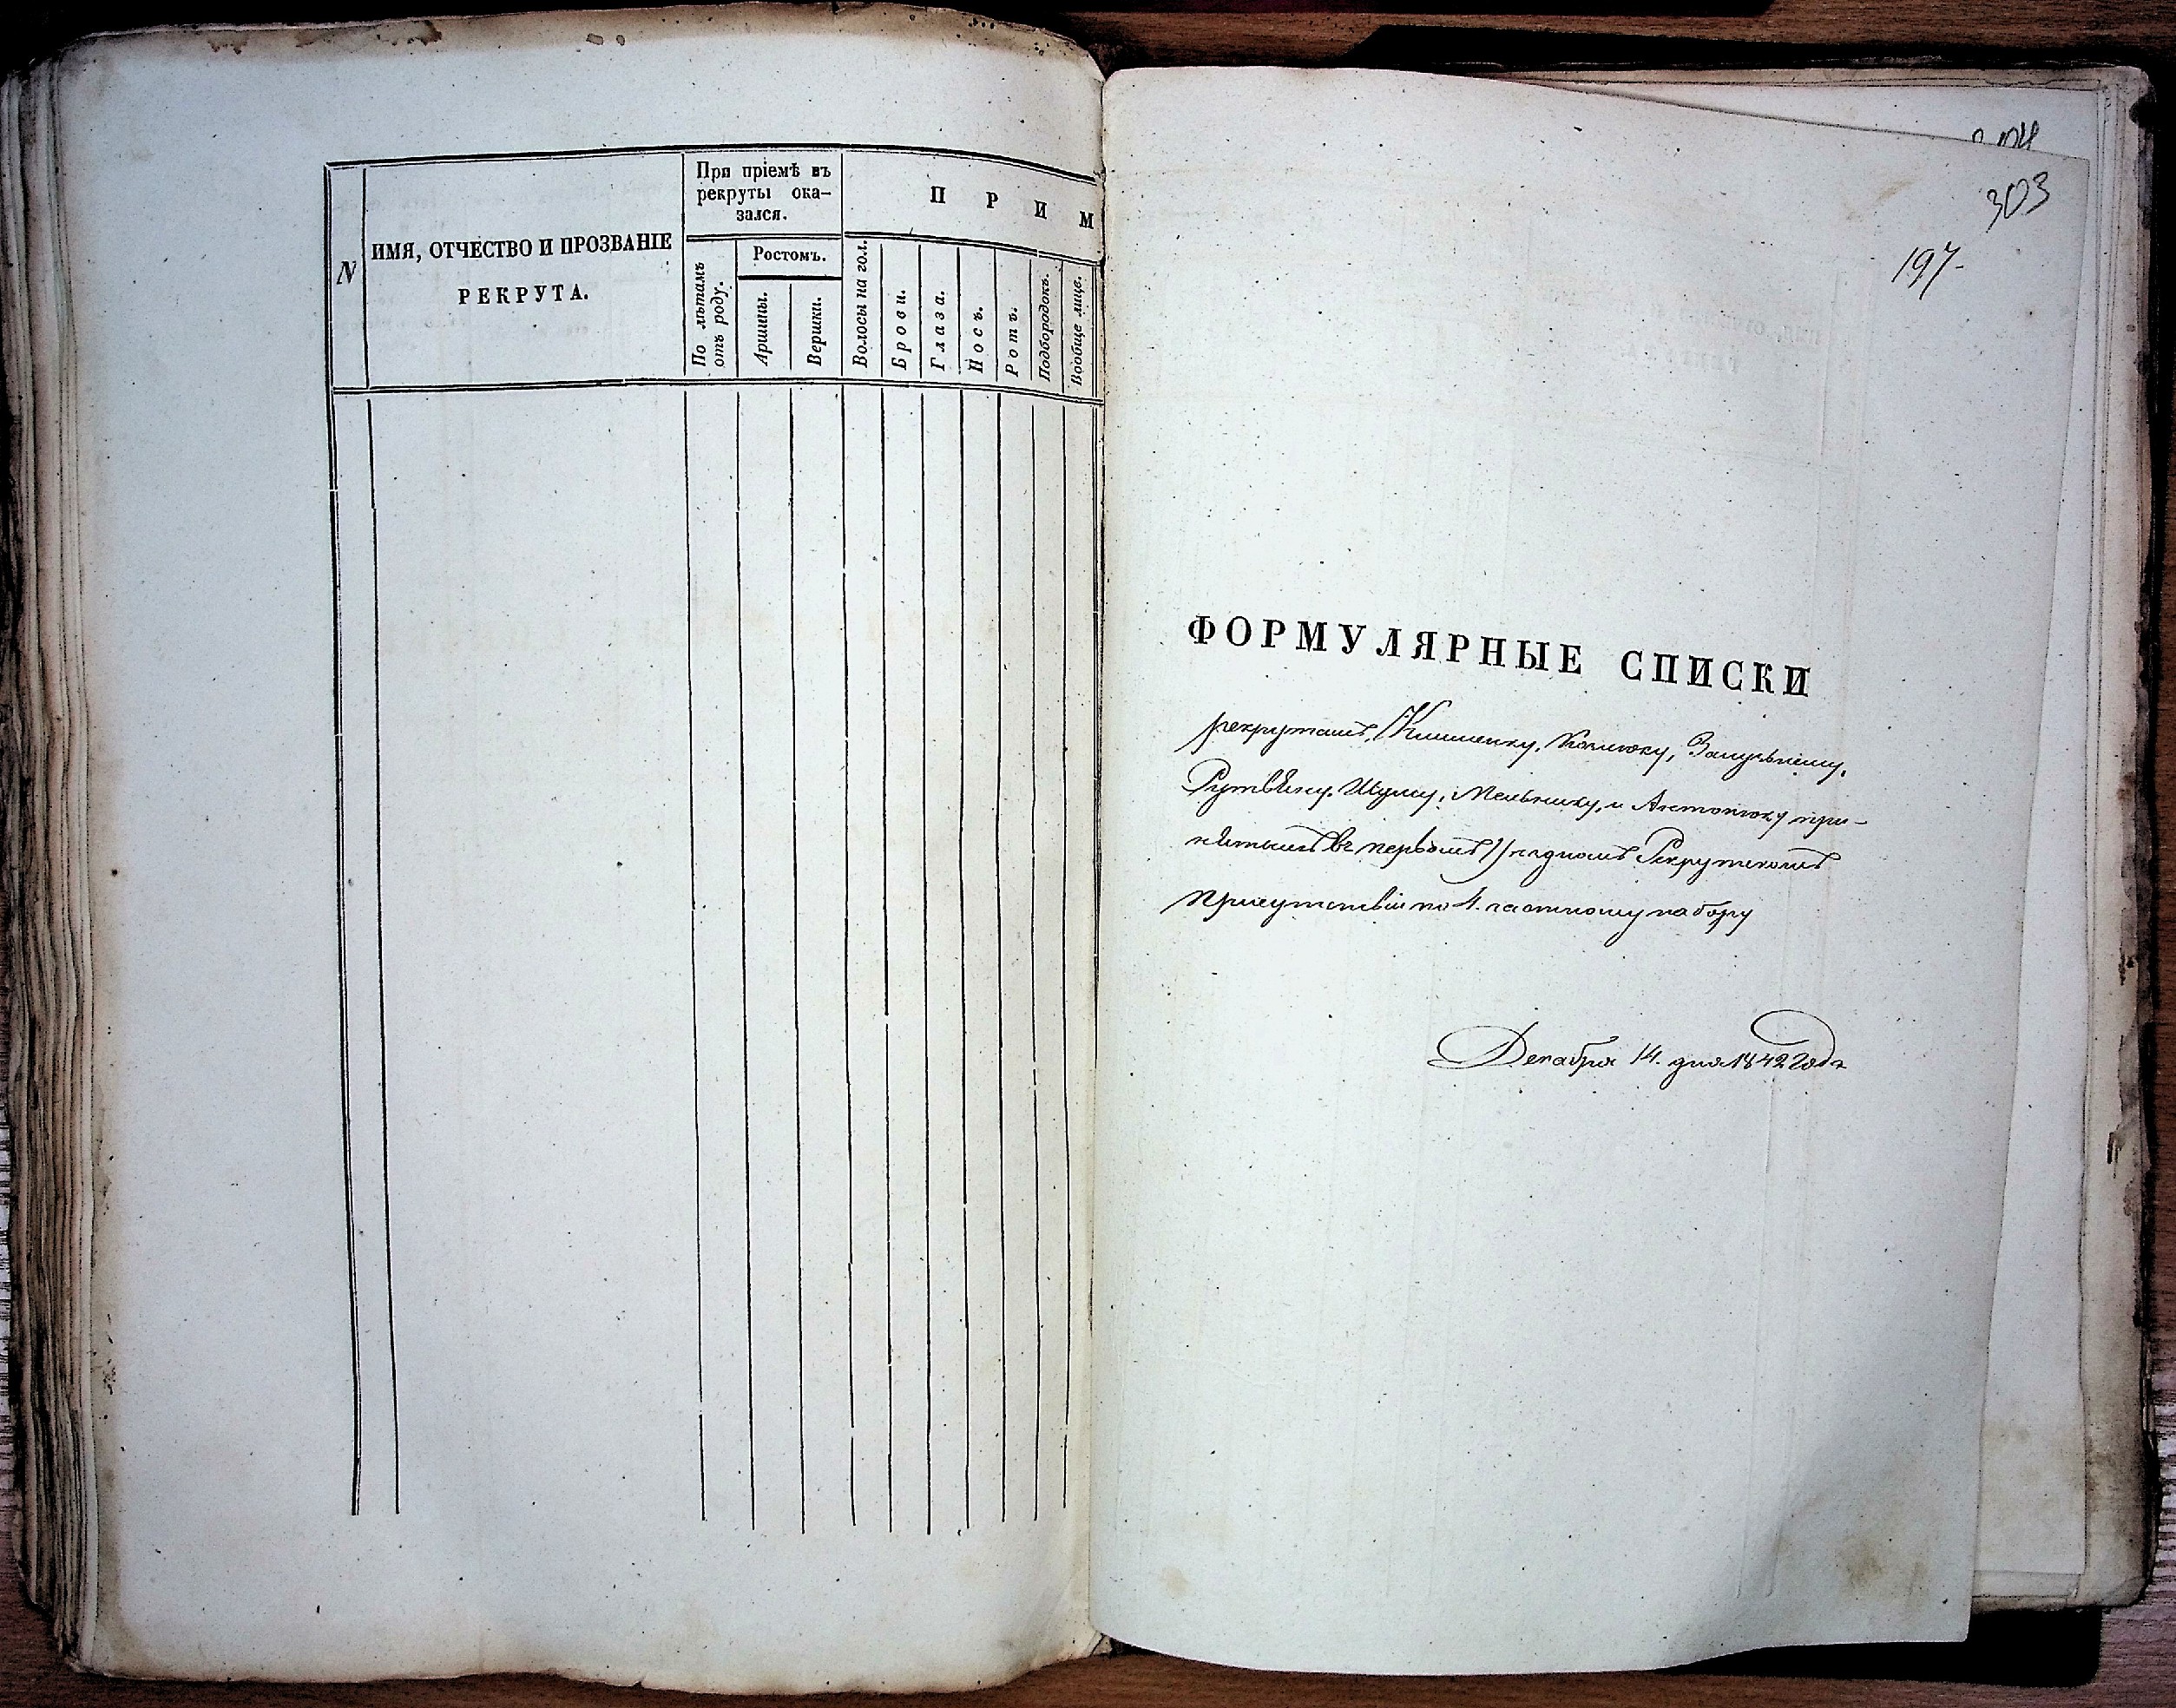 N
ИМЯ, ОТЧЕСТВО И ПРОЗВАНІЕ
РЕКРУТА.
При пріемѣ въ
рекруты ока-
зался.
По лѣтамъ
отъ роду.
Ростомъ.
Аршины.
Вершки.
П Р И М
Волосы на гол.
Брови.
Глаза.
Носъ.
Ротъ.
Подбородокъ.
Вообще лице.
303
197.
ФОРМУЛЯРНЫЕ СПИСКИ
рекрутамъ,
Шулму, Мельнику, и Антонюку при-
нятымъ въ первомъ Уѣздномъ Рекрутскомъ
Присутствіи по 4. частному набору
Декабря 14. дня 1842 года